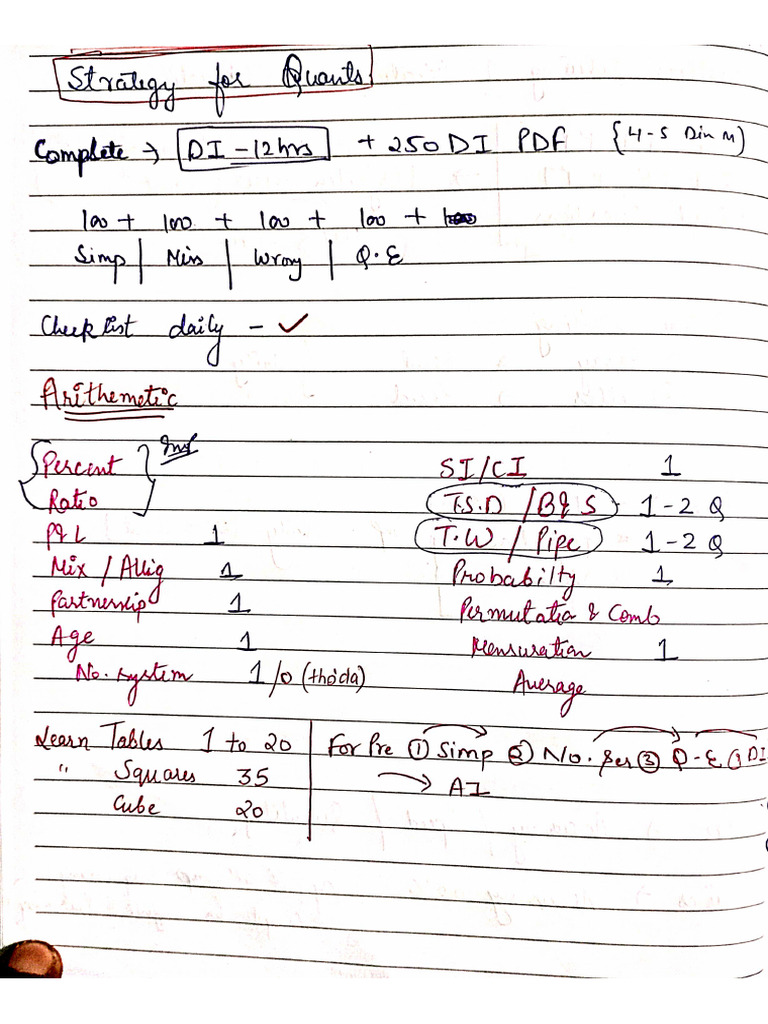 Strategy for Quants
Complete → DI - 12 hrs + 250 DI PDF {4-5 DI in M)
100 + 100 + 100 + 100 +
Simp | Miss | Wrong | Q.E
Check list daily - ✓
Arithemetic
Percent
Ratio
P&L 1
Mix / Allig 1
Partnership 1
Age 1
No. system 1/0 (thoda)
SI/CI 1
T.S.D / B&S - 1-2 Q
T.W / Pipe 1-2 Q
Probabilty 1
Permutation & Comb
Mensuration 1
Average
Learn Tables 1 to 20
" Squares 35
Cube 20
For Pre ① Simp ② No. Ser ③ Q-E DI
→ AI